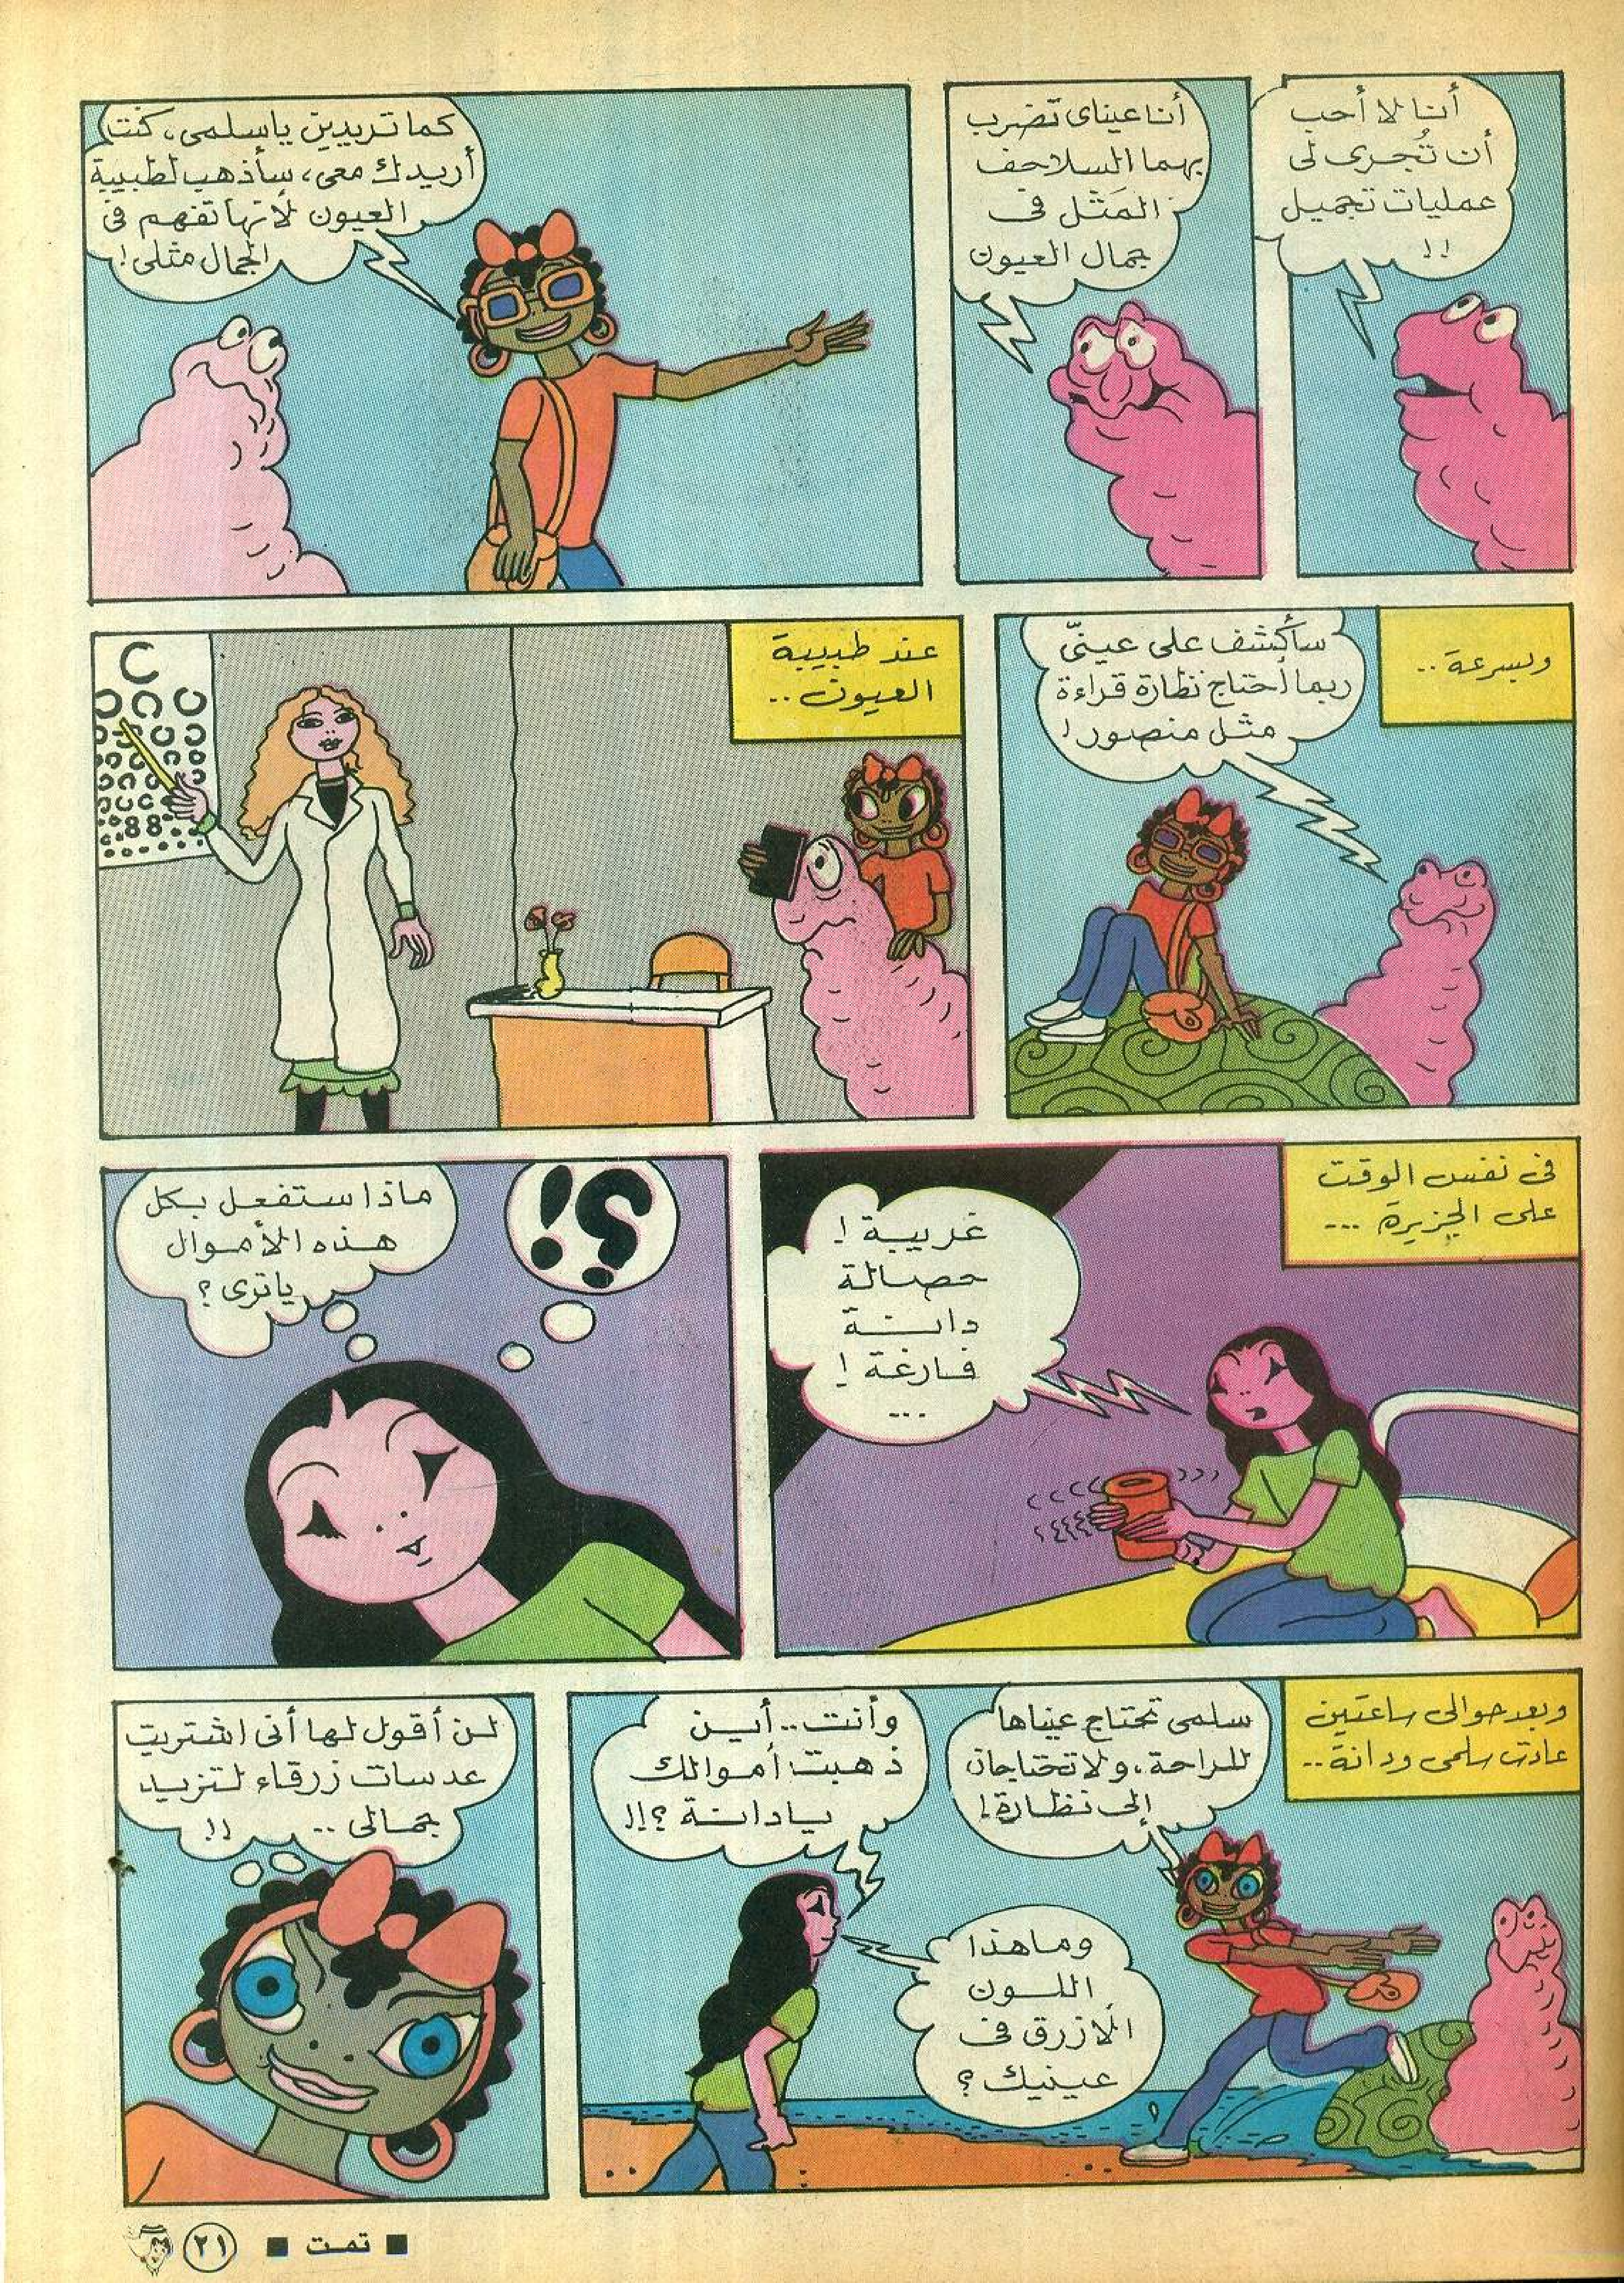 أنا لا أحب
أن تُجرى لى
عمليات تجميل
!!
أنا عيناى تضرب
بهما السلاحف
المَثل فى
جمال العيون
كما تريدين يا سلمى، كنت
أريدك معى، سأذهب لطبيبة
العيون لأنها تفهم فى
الجمال مثلى!
وبسرعة..
سأكشف على عينىّ
ربما أحتاج نظارة قراءة
مثل منصور!
عند طبيبة
العيون..
88
فى نفس الوقت
على الجزيرة ...
غريبة!
حصالة
دانة
فارغة!
...
؟!
ماذا ستفعل بكل
هذه الأموال
يا ترى؟
وبعد حوالى ساعتين
عادت سلمى ودانة..
سلمى تحتاج عيناها
للراحة، ولا تحتاجان
إلى نظارة!
وأنت.. أين
ذهبت أموالك
يا دانة؟!!
وما هذا
اللون
الأزرق فى
عينيك؟
لن أقول لها أنى اشتريت
عدسات زرقاء لتزيد
جمالى .. !!
■ تمت ■ ٢١